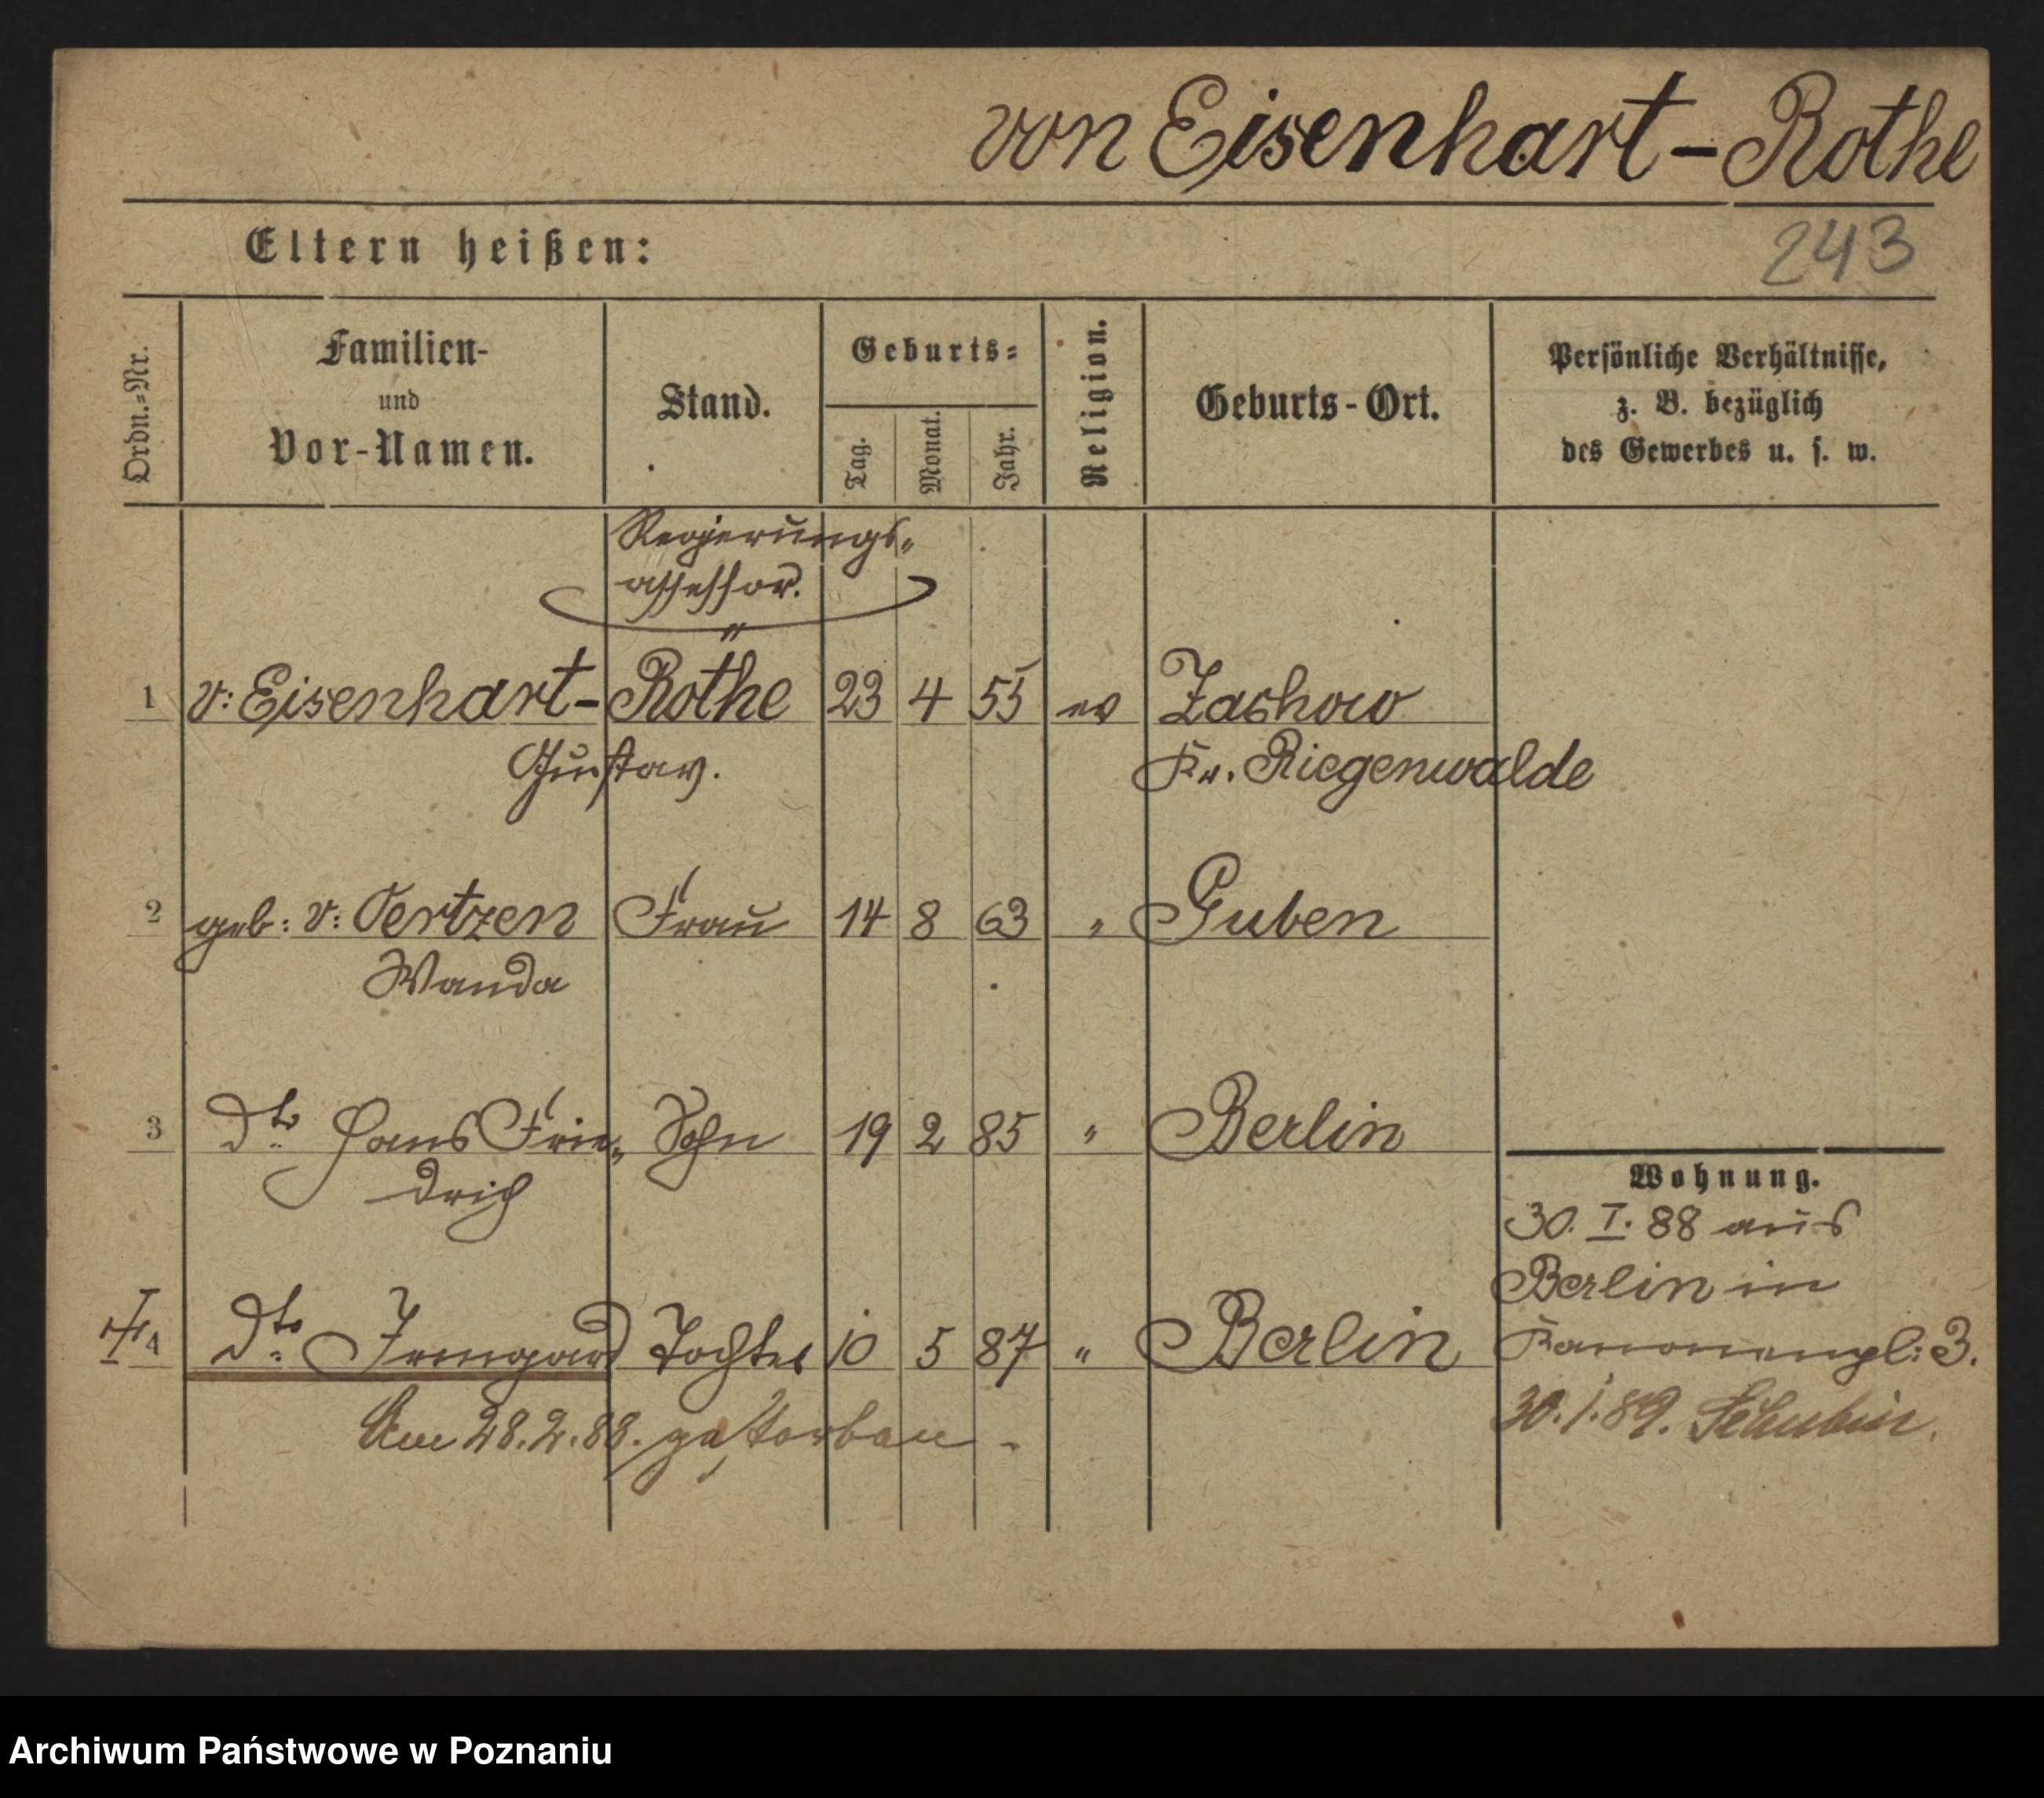 von Eisenhart-Rothe
Eltern heißen:
243
Ordn.-Nr.
Familien-
und
Vor-Namen.
Stand.
Geburts-
Tag.
Monat.
Jahr.
Religion.
Geburts-Ort.
Persönliche Verhältnisse,
z. B. bezüglich
des Gewerbes u. s. w.
Regierungs-
assessor.
1 v: Eisenhart-Rothe 23 4 55 ev Zachow
Gustav. Kr. Riegenwalde
2 geb: v: Oertzen Frau 14 8 63 " Guben
Wanda
3 Dto Hans Frie- Sohn 19 2 85 " Berlin
drich
Wohnung.
30. I. 88 aus
Berlin in
4 Dto Irmgard Tochter 10 5 87 " Berlin
Kanonenpl: 3.
Am 28.2.88. gestorben.
30.1.89. Schubin.
Archiwum Państwowe w Poznaniu